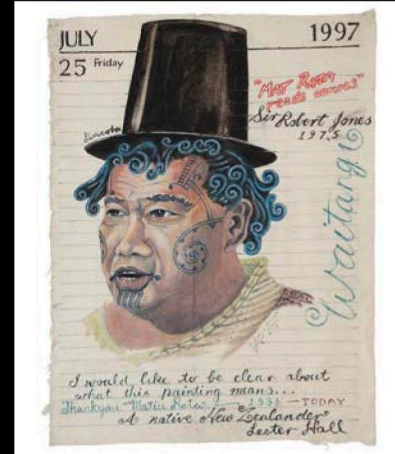 JULY 1997
25 Friday
"Mat Rata
reads comics"
Sir Robert Jones
1975
Lincoln
Waitangi
I would like to be clear about
what this painting means...
Thankyou Matiu Rata 1934 — TODAY
A native New Zealander
Lester Hall